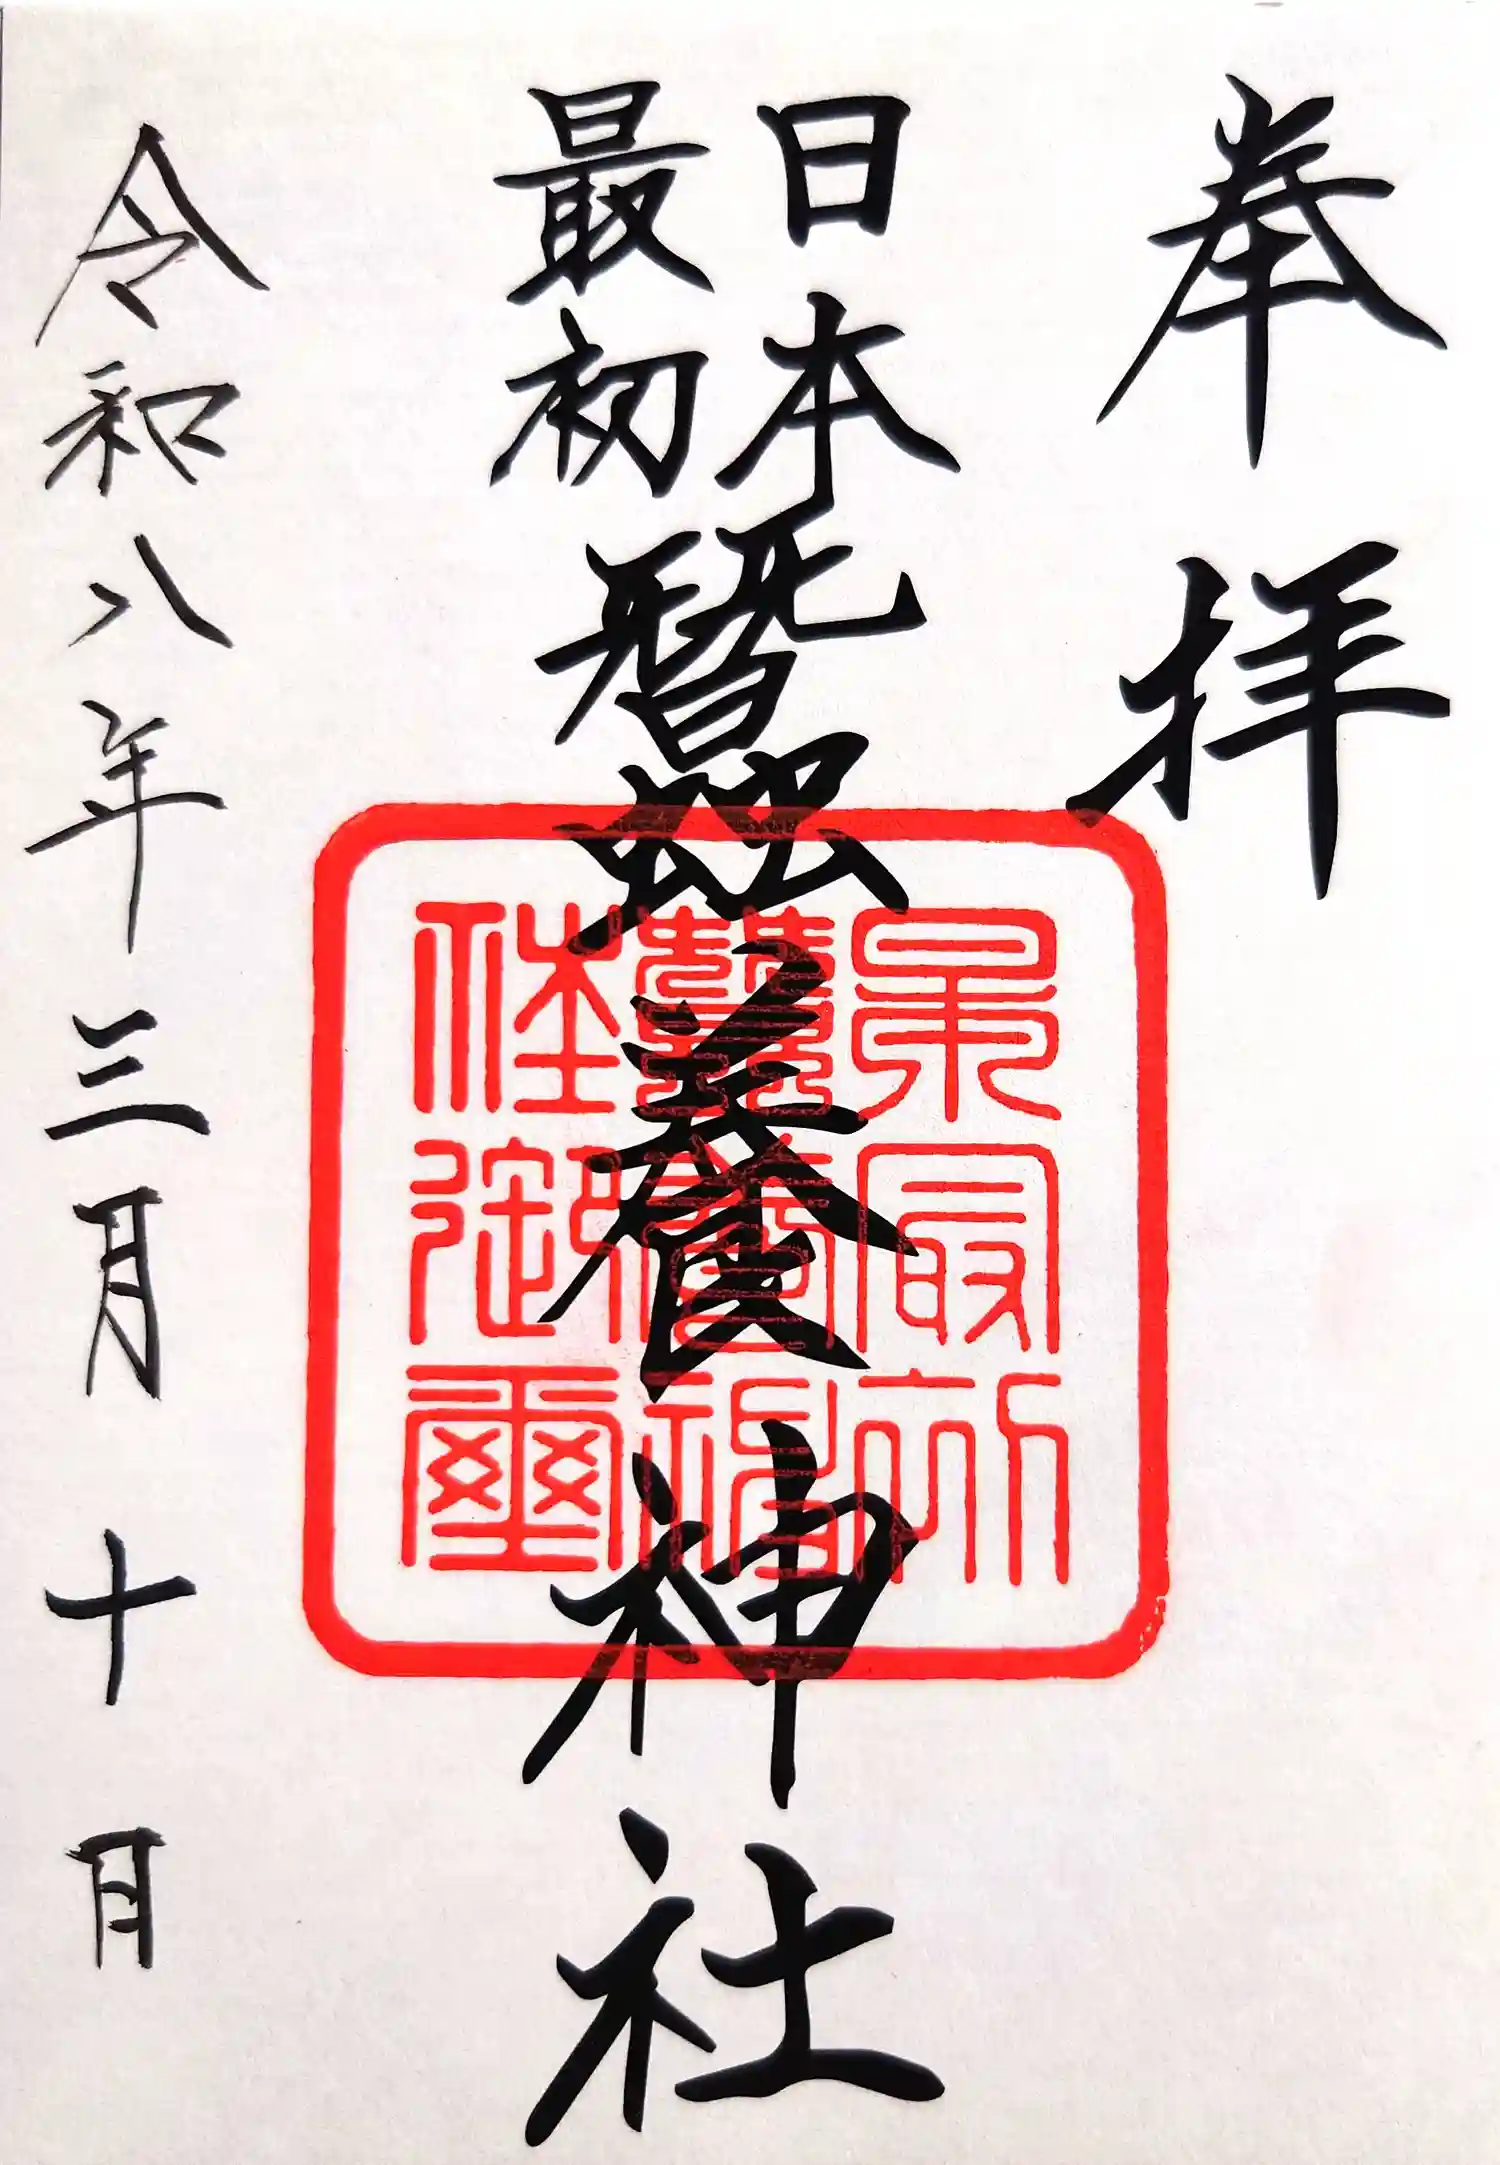 奉拝
日本
最初
蠶養神社
日本最初
蠶養神
社御璽
令和八年三月十日